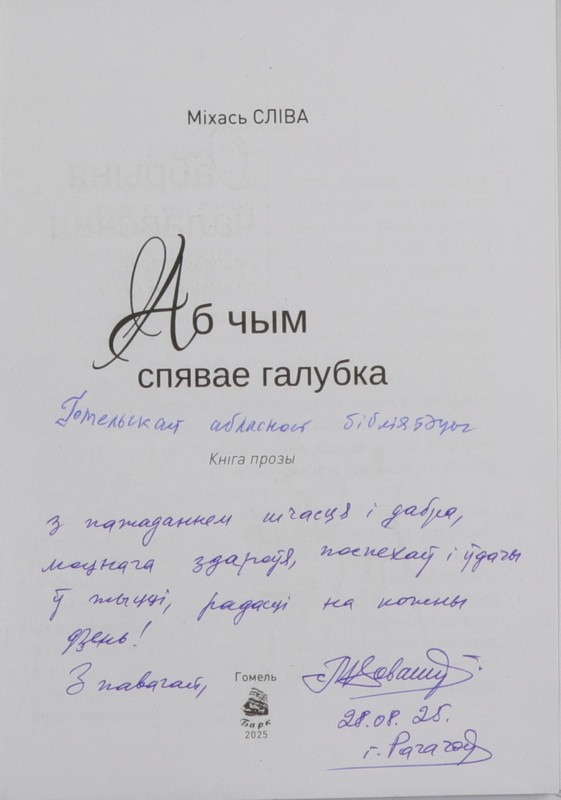 Міхась СЛІВА
Аб чым
спявае галубка
Гомельскай абласной бібліятэцы
Кніга прозы
з пажаданнем шчасця і дабра,
моцнага здароўя, поспехаў і ўдачы
ў жыцці, радасці на кожны
дзень!
З павагай,
Гомель
Барк
2025
28.08.25.
г. Рагачоў